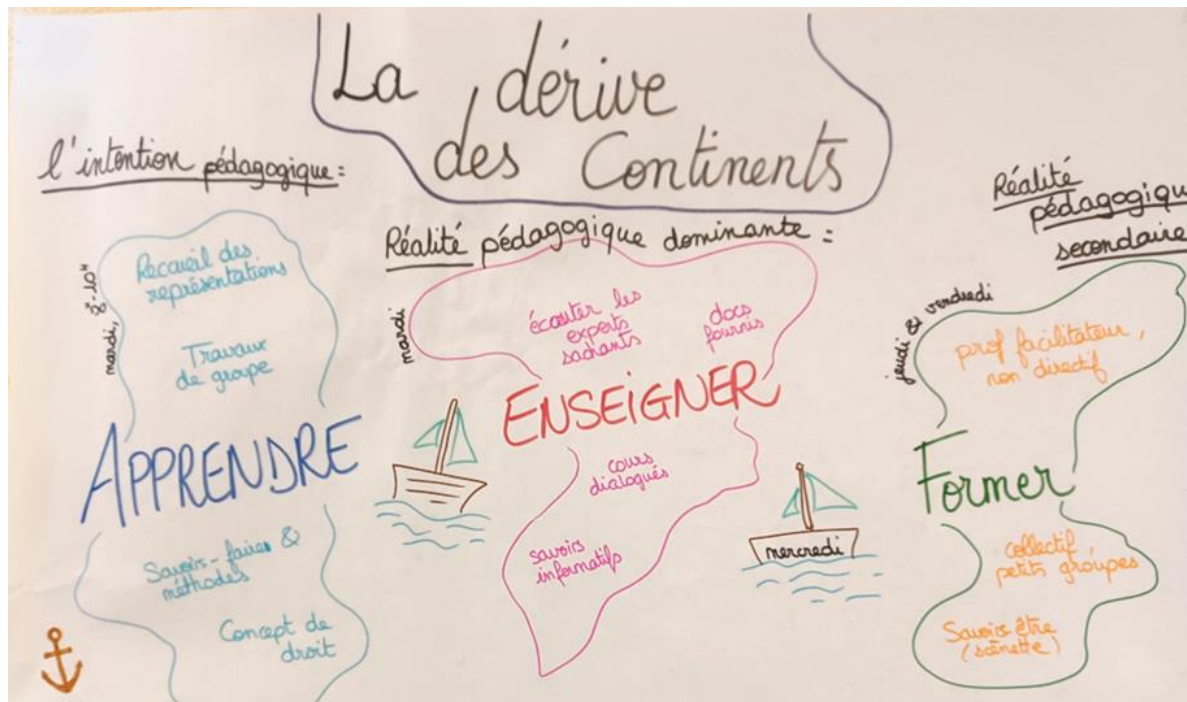 La dérive
des Continents
l'intention pédagogique =
mardi, 8h-10h
Recueil des
représentations
Travaux
de groupe
APPRENDRE
Savoirs-faire &
méthodes
Concept de
droit
Réalité pédagogique dominante =
mardi
écouter les
experts
sachants
docs
fournis
ENSEIGNER
cours
dialogués
savoirs
informatifs
mercredi
Réalité
pédagogique
secondaire
jeudi & vendredi
prof facilitateur,
non directif
Former
collectif
petits groupes
Savoirs être
(scènette)